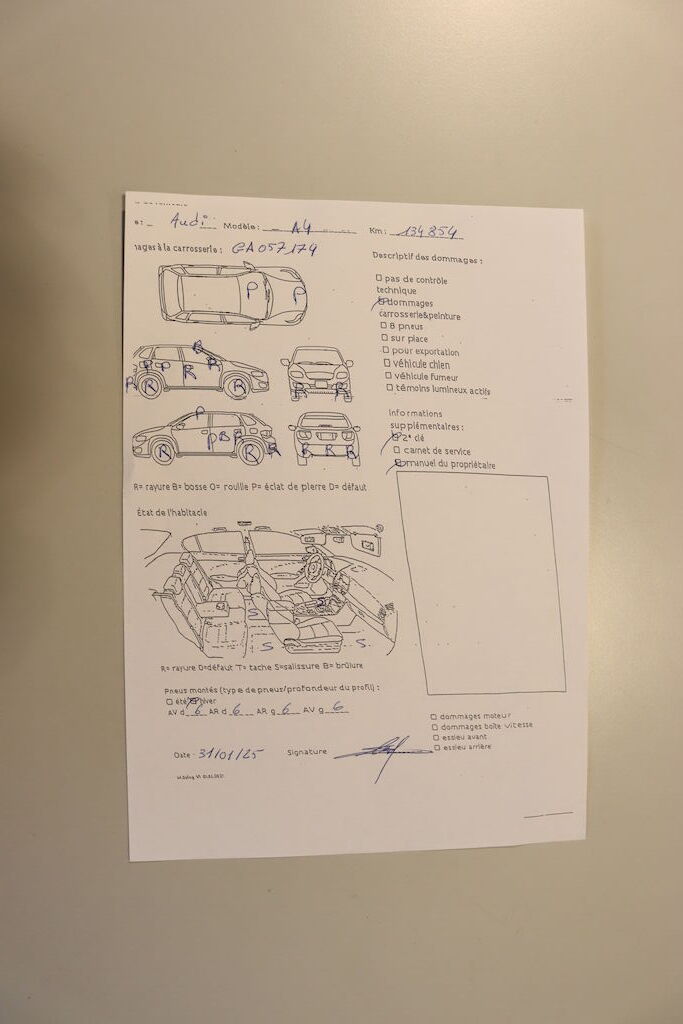 e: Audi Modèle: A4 Km: 134854
nages à la carrosserie: GA057179
Descriptif des dommages:
pas de contrôle
technique
dommages
carrosserie&peinture
8 pneus
sur place
pour exportation
véhicule chien
véhicule fumeur
témoins lumineux actifs
P P
B
R R P R R R R
R R
P
R P B P R R
R R R
Informations
supplémentaires:
2e clé
carnet de service
manuel du propriétaire
R= rayure B= bosse O= rouille P= éclat de pierre D= défaut
État de l'habitacle
S S
S S
R= rayure D=défaut T= tache S=salissure B= brûlure
Pneus montés (type de pneus/profondeur du profil):
été hiver
AV d 6 AR d 6 AR g 6 AV g 6
dommages moteur
dommages boîte vitesse
essieu avant
essieu arrière
Date: 31/01/25 Signature